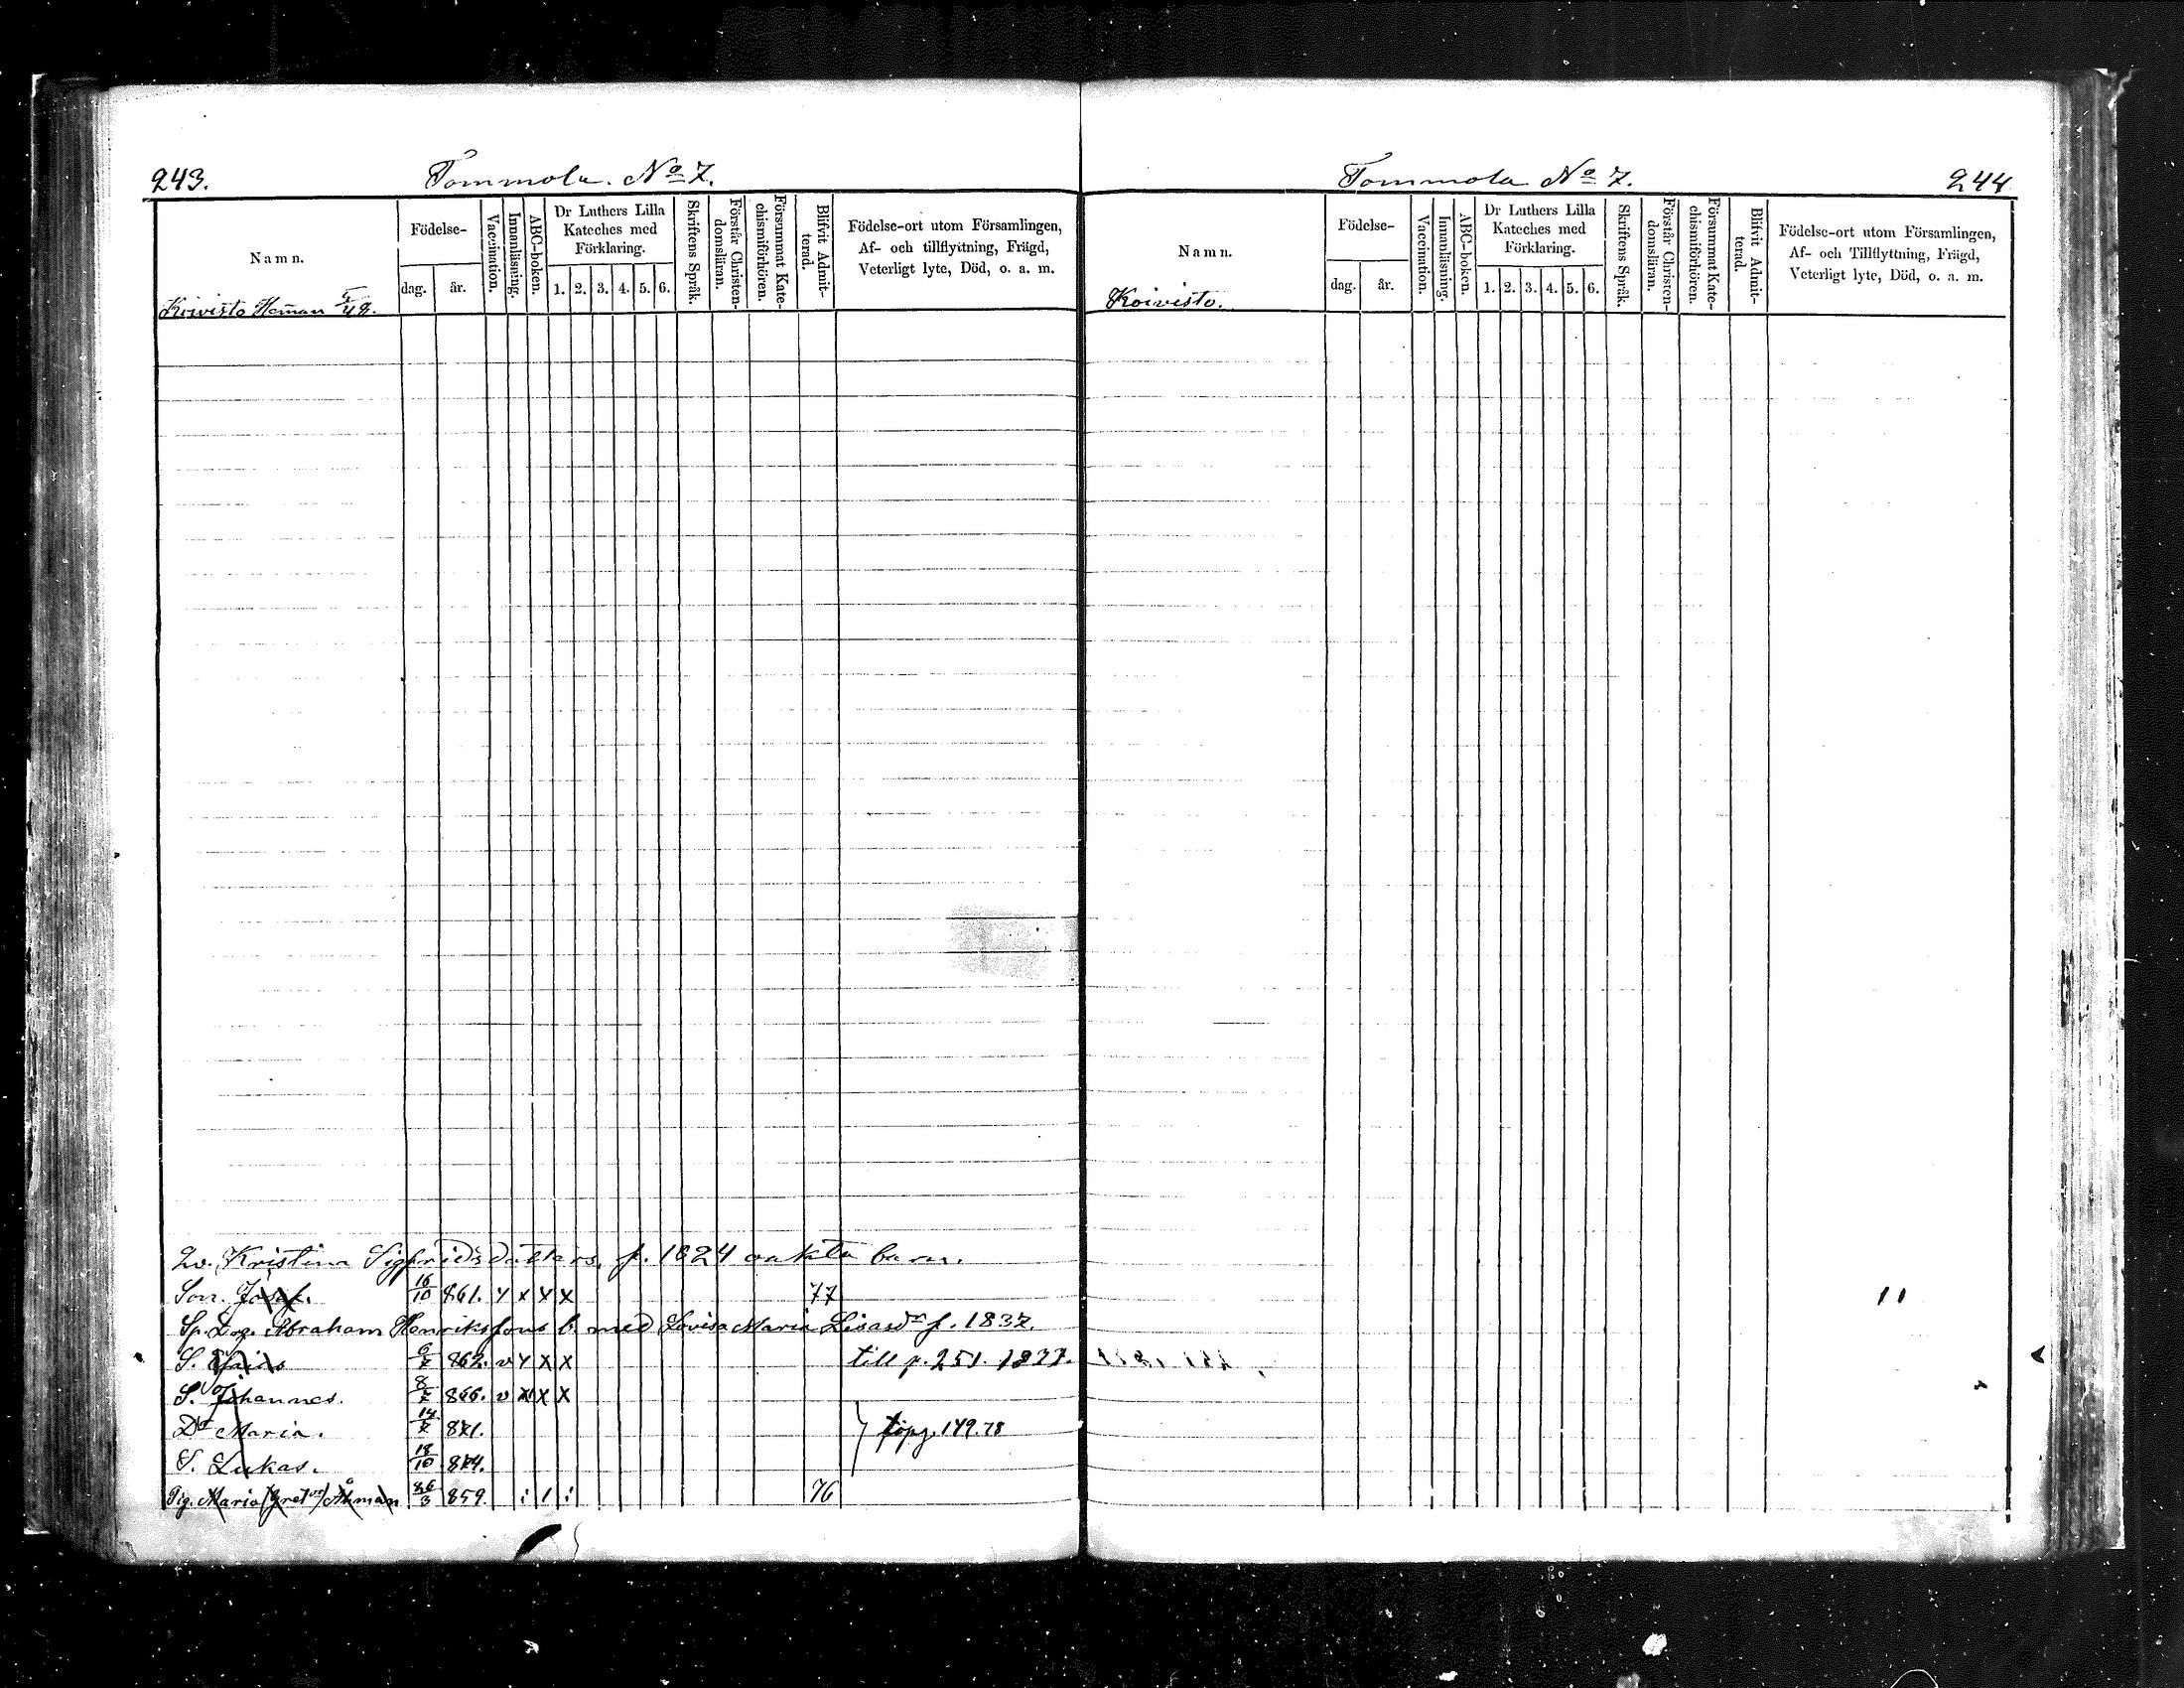 243.
Tommola. No 7.
Namn.
Födelse-
dag.
år.
Vaccination.
Innanläsning.
ABC-boken.
Dr Luthers Lilla
Kateches med
Förklaring.
1. 2. 3. 4. 5. 6.
Skriftens Språk.
Förstår Christen-
domsläran.
Försummat Kate-
chismiförhören.
Blifvit Admit-
terad.
Födelse-ort utom Församlingen,
Af- och tillflyttning, Frägd,
Veterligt lyte, Död, o. a. m.
Koivisto Heman
Kristina Sigfridsdotters f. 1824 oäkta barn.
Son. Josef. 16/10 861. x x x 77
Abraham Henrikssons b. med Lovisa Maria f. 1837.
S. 862. v x x till p. 251. 1877.
S. Johannes. 866. v x x x
Dr Maria. 871. 149. 78
S. Lukas. 18/10 874.
Pig. Maria Åkman 26/3 859. 76
Tommola No 7.
244
Namn.
Födelse-
dag.
år.
Vaccination.
Innanläsning.
ABC-boken.
Dr Luthers Lilla
Kateches med
Förklaring.
1. 2. 3. 4. 5. 6.
Skriftens Språk.
Förstår Christen-
domsläran.
Försummat Kate-
chismiförhören.
Blifvit Admit-
terad.
Födelse-ort utom Församlingen,
Af- och Tillflyttning, Frägd,
Veterligt lyte, Död, o. a. m.
Koivisto.